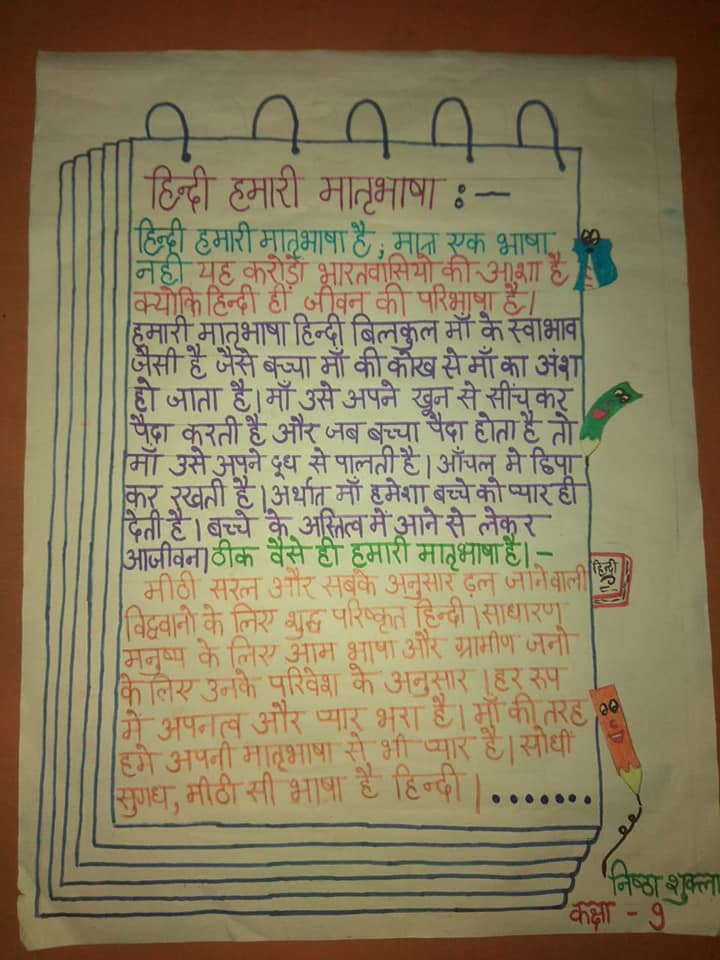 हिन्दी हमारी मातृभाषा :—
हिन्दी हमारी मातृभाषा है, मात्र एक भाषा
नही यह करोड़ों भारतवासियो की आशा है
क्योकि हिन्दी हीं जीवन की परिभाषा है।
हमारी मातृभाषा हिन्दी बिलकुल माँ के स्वाभाव
जैसी है जैसे बच्चा माँ की कोख से माँ का अंश
हो जाता है। माँ उसे अपने खून से सींच कर
पैदा करती है और जब बच्चा पैदा होता है तो
माँ उसे अपने दूध से पालती है। आँचल मे छिपा
कर रखती है। अर्थात माँ हमेशा बच्चे को प्यार ही
देती है। बच्चे के अस्तित्व में आने से लेकर
आजीवन। ठीक वैसे ही हमारी मातृभाषा है।-
मीठी सरल और सबके अनुसार ढ़ल जानेवाली
विद्ववानो के लिए शुद्ध परिष्कृत हिन्दी। साधारण
मनुष्य के लिए आम भाषा और ग्रामीण जनो
के लिए उनके परिवेश के अनुसार । हर रूप
मे अपनत्व और प्यार भरा है। माँ की तरह
हमे अपनी मातृभाषा से भी प्यार है। सोधी
सुगध, मीठी सी भाषा है हिन्दी |.......
हिन्दी
निष्ठा शुक्ला
कक्षा - 9